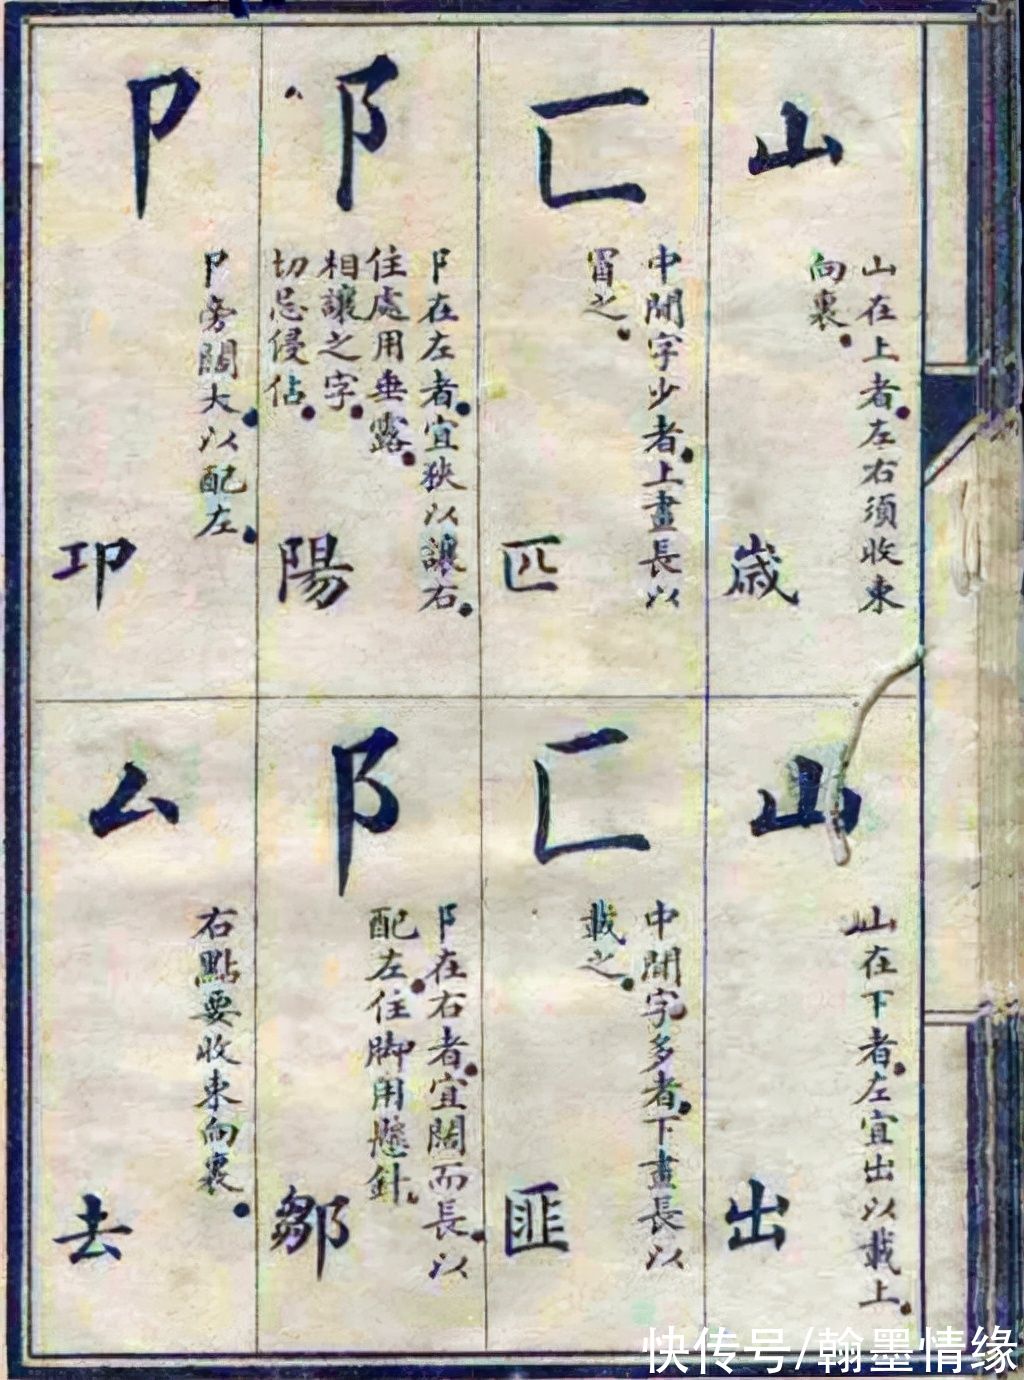 山
山在上者。左右須收束
向裏。
歲
匚
中間字少者。上畫長以
冒之。
匹
阝
阝在左者。宜狹以讓右。
住處用垂露。
相讓之字。
切忌侵佔。
陽
卩
卩旁闊大。以配左。
卭
山
山在下者。左宜出以載上。
出
匚
中間字多者。下畫長以
載之。
匪
阝
阝在右者。宜闊而長。以
配左。住脚用懸針。
鄒
厶
右點要收束向裏。
去
快传号/翰墨情缘